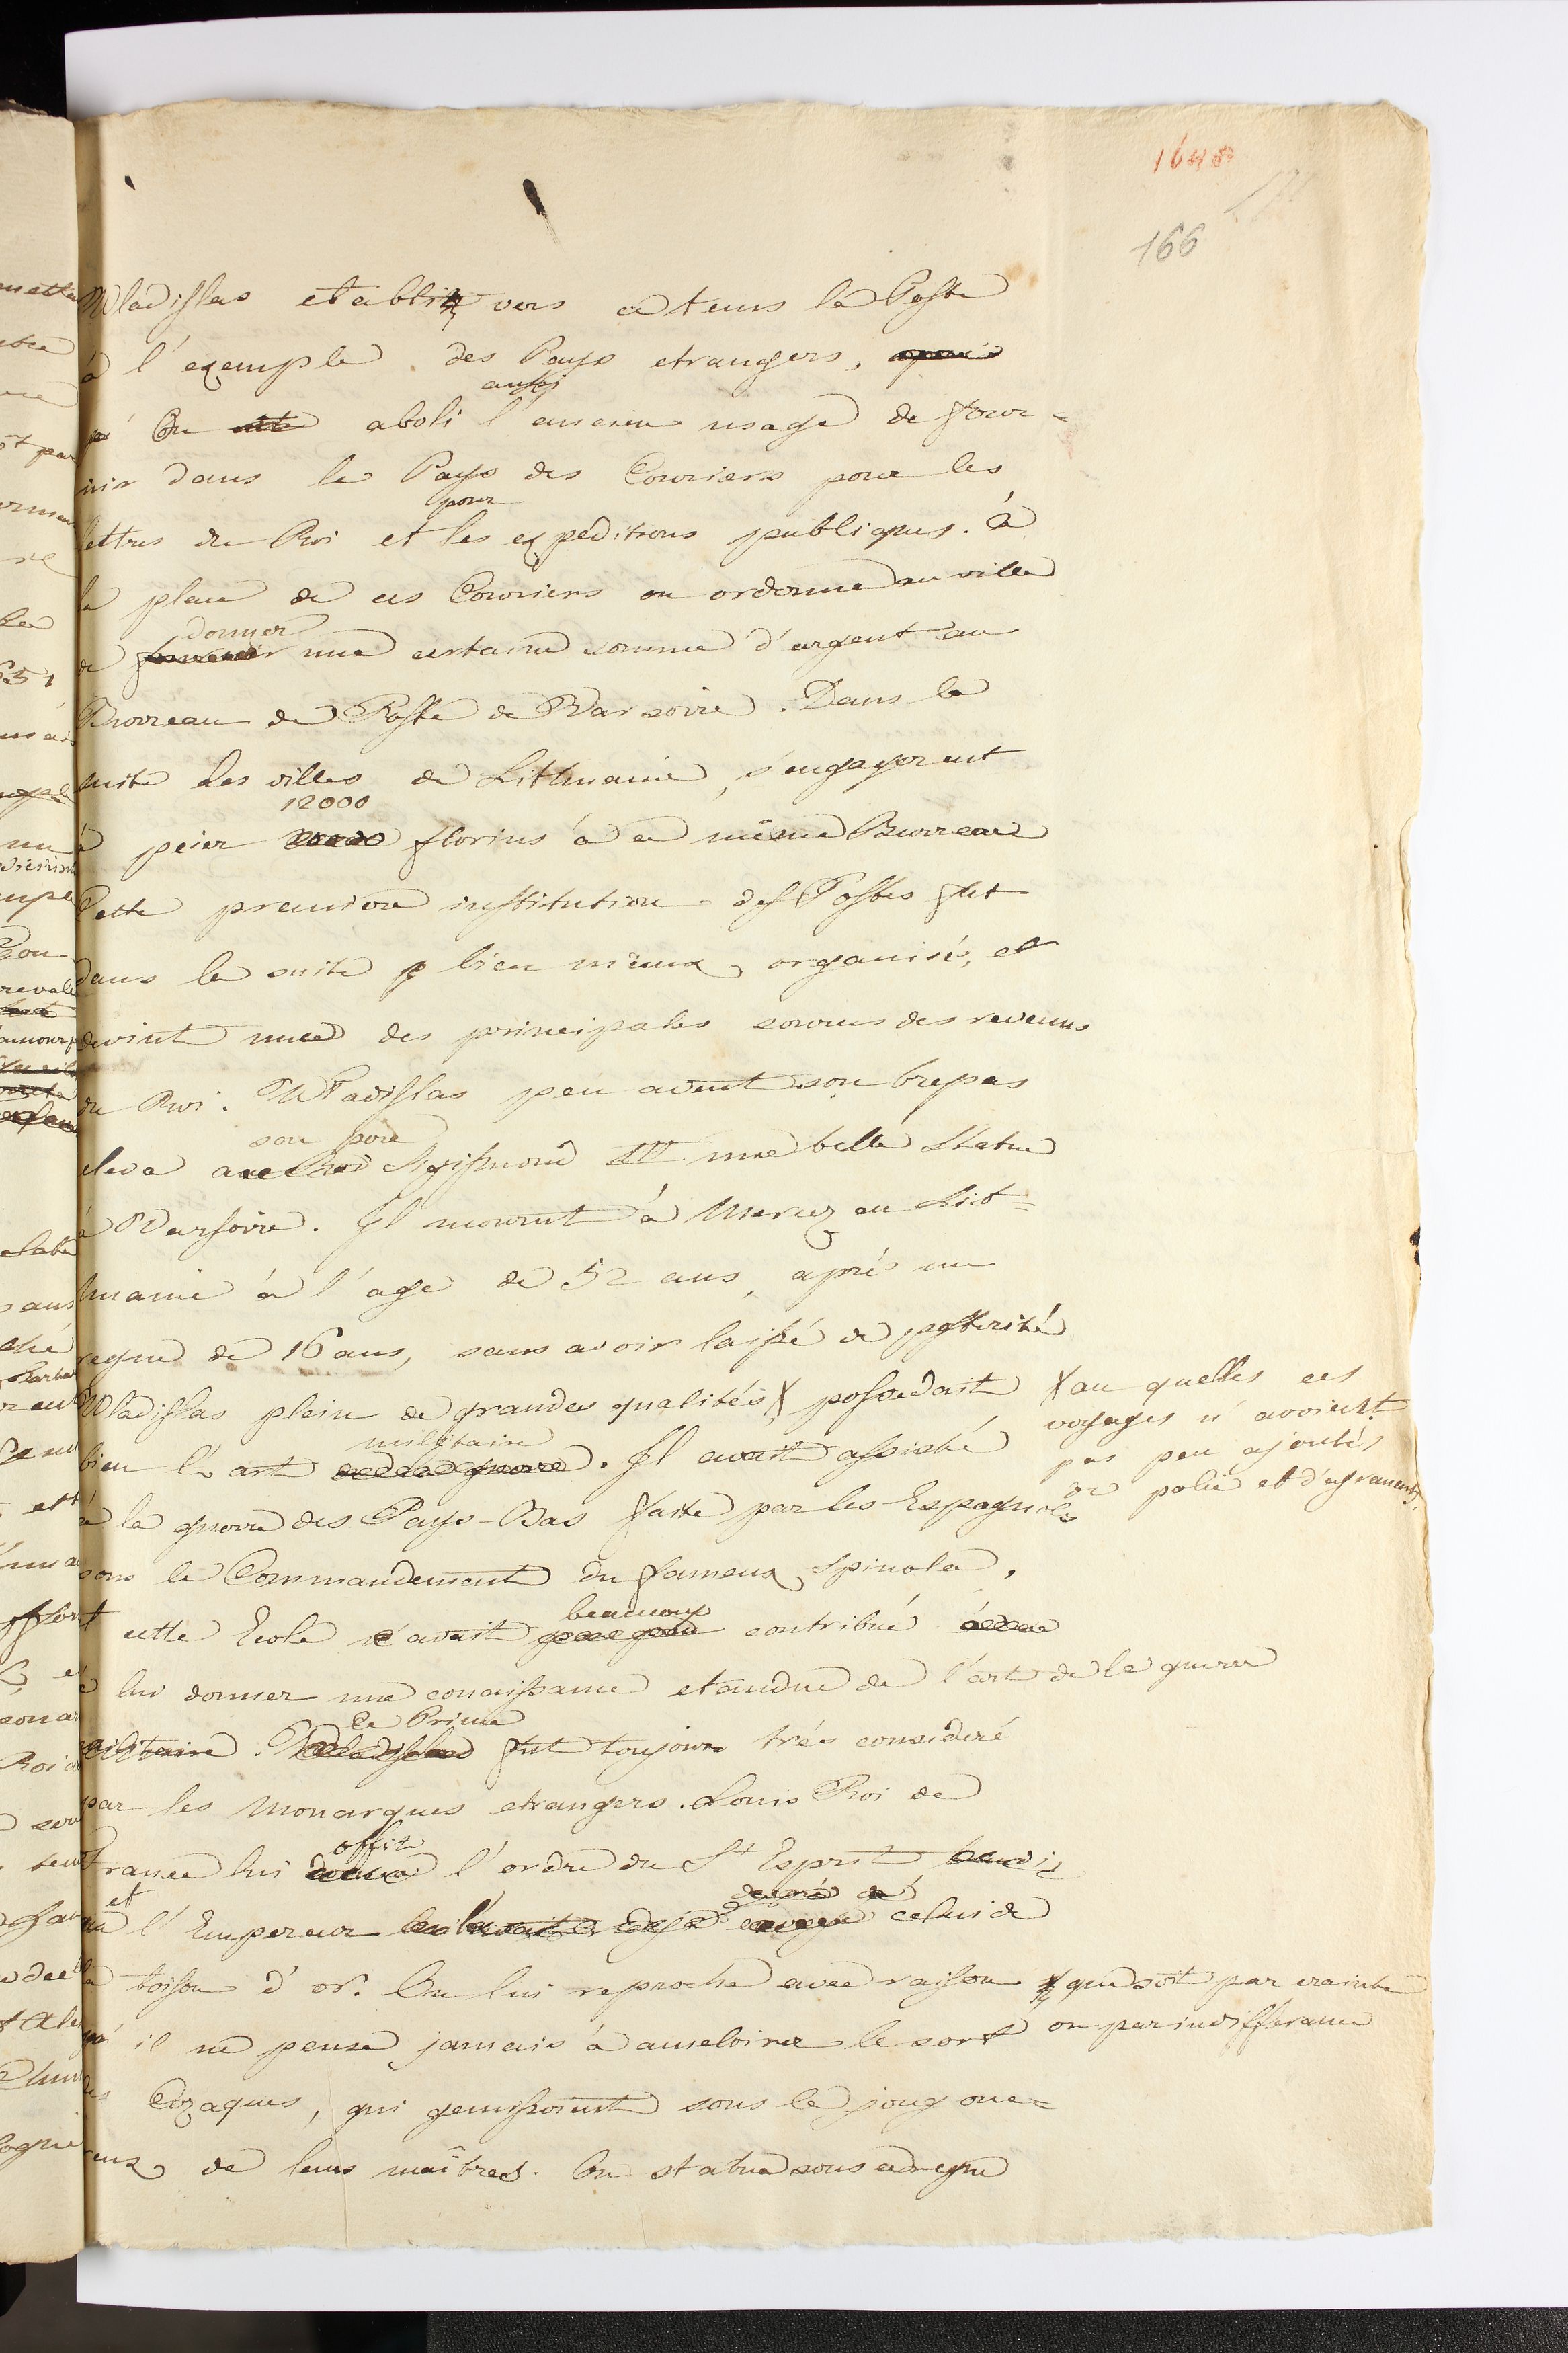 1648
166
Wladislas etablit vers ce tems la Poste
à l'exemple des Pays etrangers,
On aboli aussi l'ancien usage de four=
nir dans le Pays des Couriers pour les
lettres du Roi et pour les expeditions publiques. à
la place de ces Couriers on ordonna au villes
de donner une certaine somme d'argent au
Bureau de Poste de Varsovie. Dans la
suite les villes de Lithuanie, s'engagerent
à peier 12000 florins à ce même Burreau
Cette premiere institution des Postes fut
dans la suite bien mieux organisé, et
devint une des principales sources des revenus
du Roi. Wladislas peu avant son trepas
eleva a son pere Sigismond III une belle Statue
à Varsovie. Il mourut à Merecz en Lit=
huanie à l'age de 52 ans, après un
regne de 16 ans, sans avoir laissé de posterité
Wladislas plein de grandes qualités X possedait
X au quelles ces
voyages n'avoient
pas peu ajoutés
de polie et d'agrement,
bien l'art militaire. Il avait assisté
à la guerre des Pays-Bas faite par les Espagnols
sous le Commandement du fameux Spinola,
et cette Ecole avait beaucoup contribué
à lui donner une conaissance etandue de l'art de la guerre
militaire. Ce Prince fut toujours très consideré
par les Monarques etrangers. Louis Roi de
France lui offit l'ordre du St Esprit
et l'Empereur celui de
la toison d'or. On lui reproche avec raison X que soit par crainte
ou par indifferance
qu'il ne pensa jamais à ameloirer le sort
des Cozaques, qui gemissoient sous le joug one=
reux de leurs maîtres. On statua sous ce regne